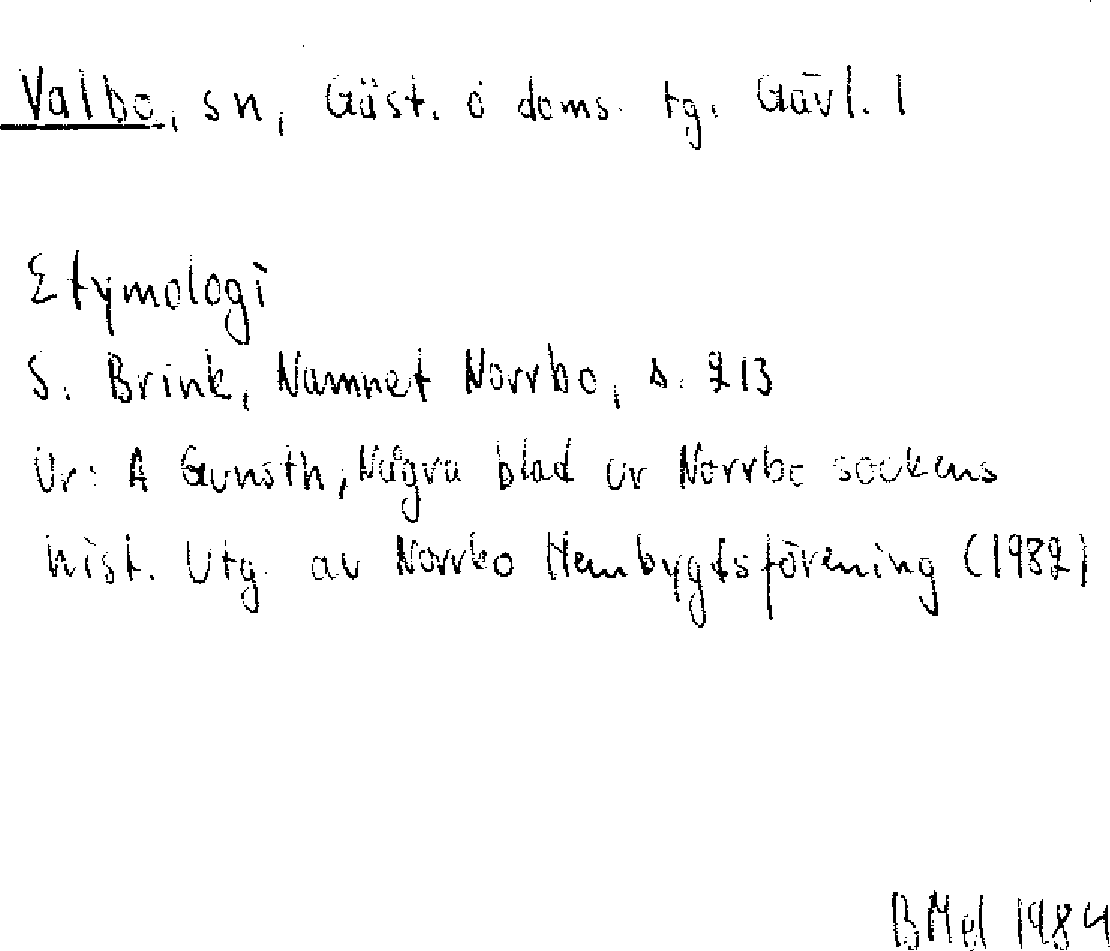 Valbo, sn, Gäst. ö doms. tg. Gävl. l
Etymologi
S. Brink, Namnet Norrbo, s. 213
Ur: A Gunsth, Några blad ur Norrbo sockens
hist. Utg. av Norrbo Hembygdsförening (1982)
BMel 1984